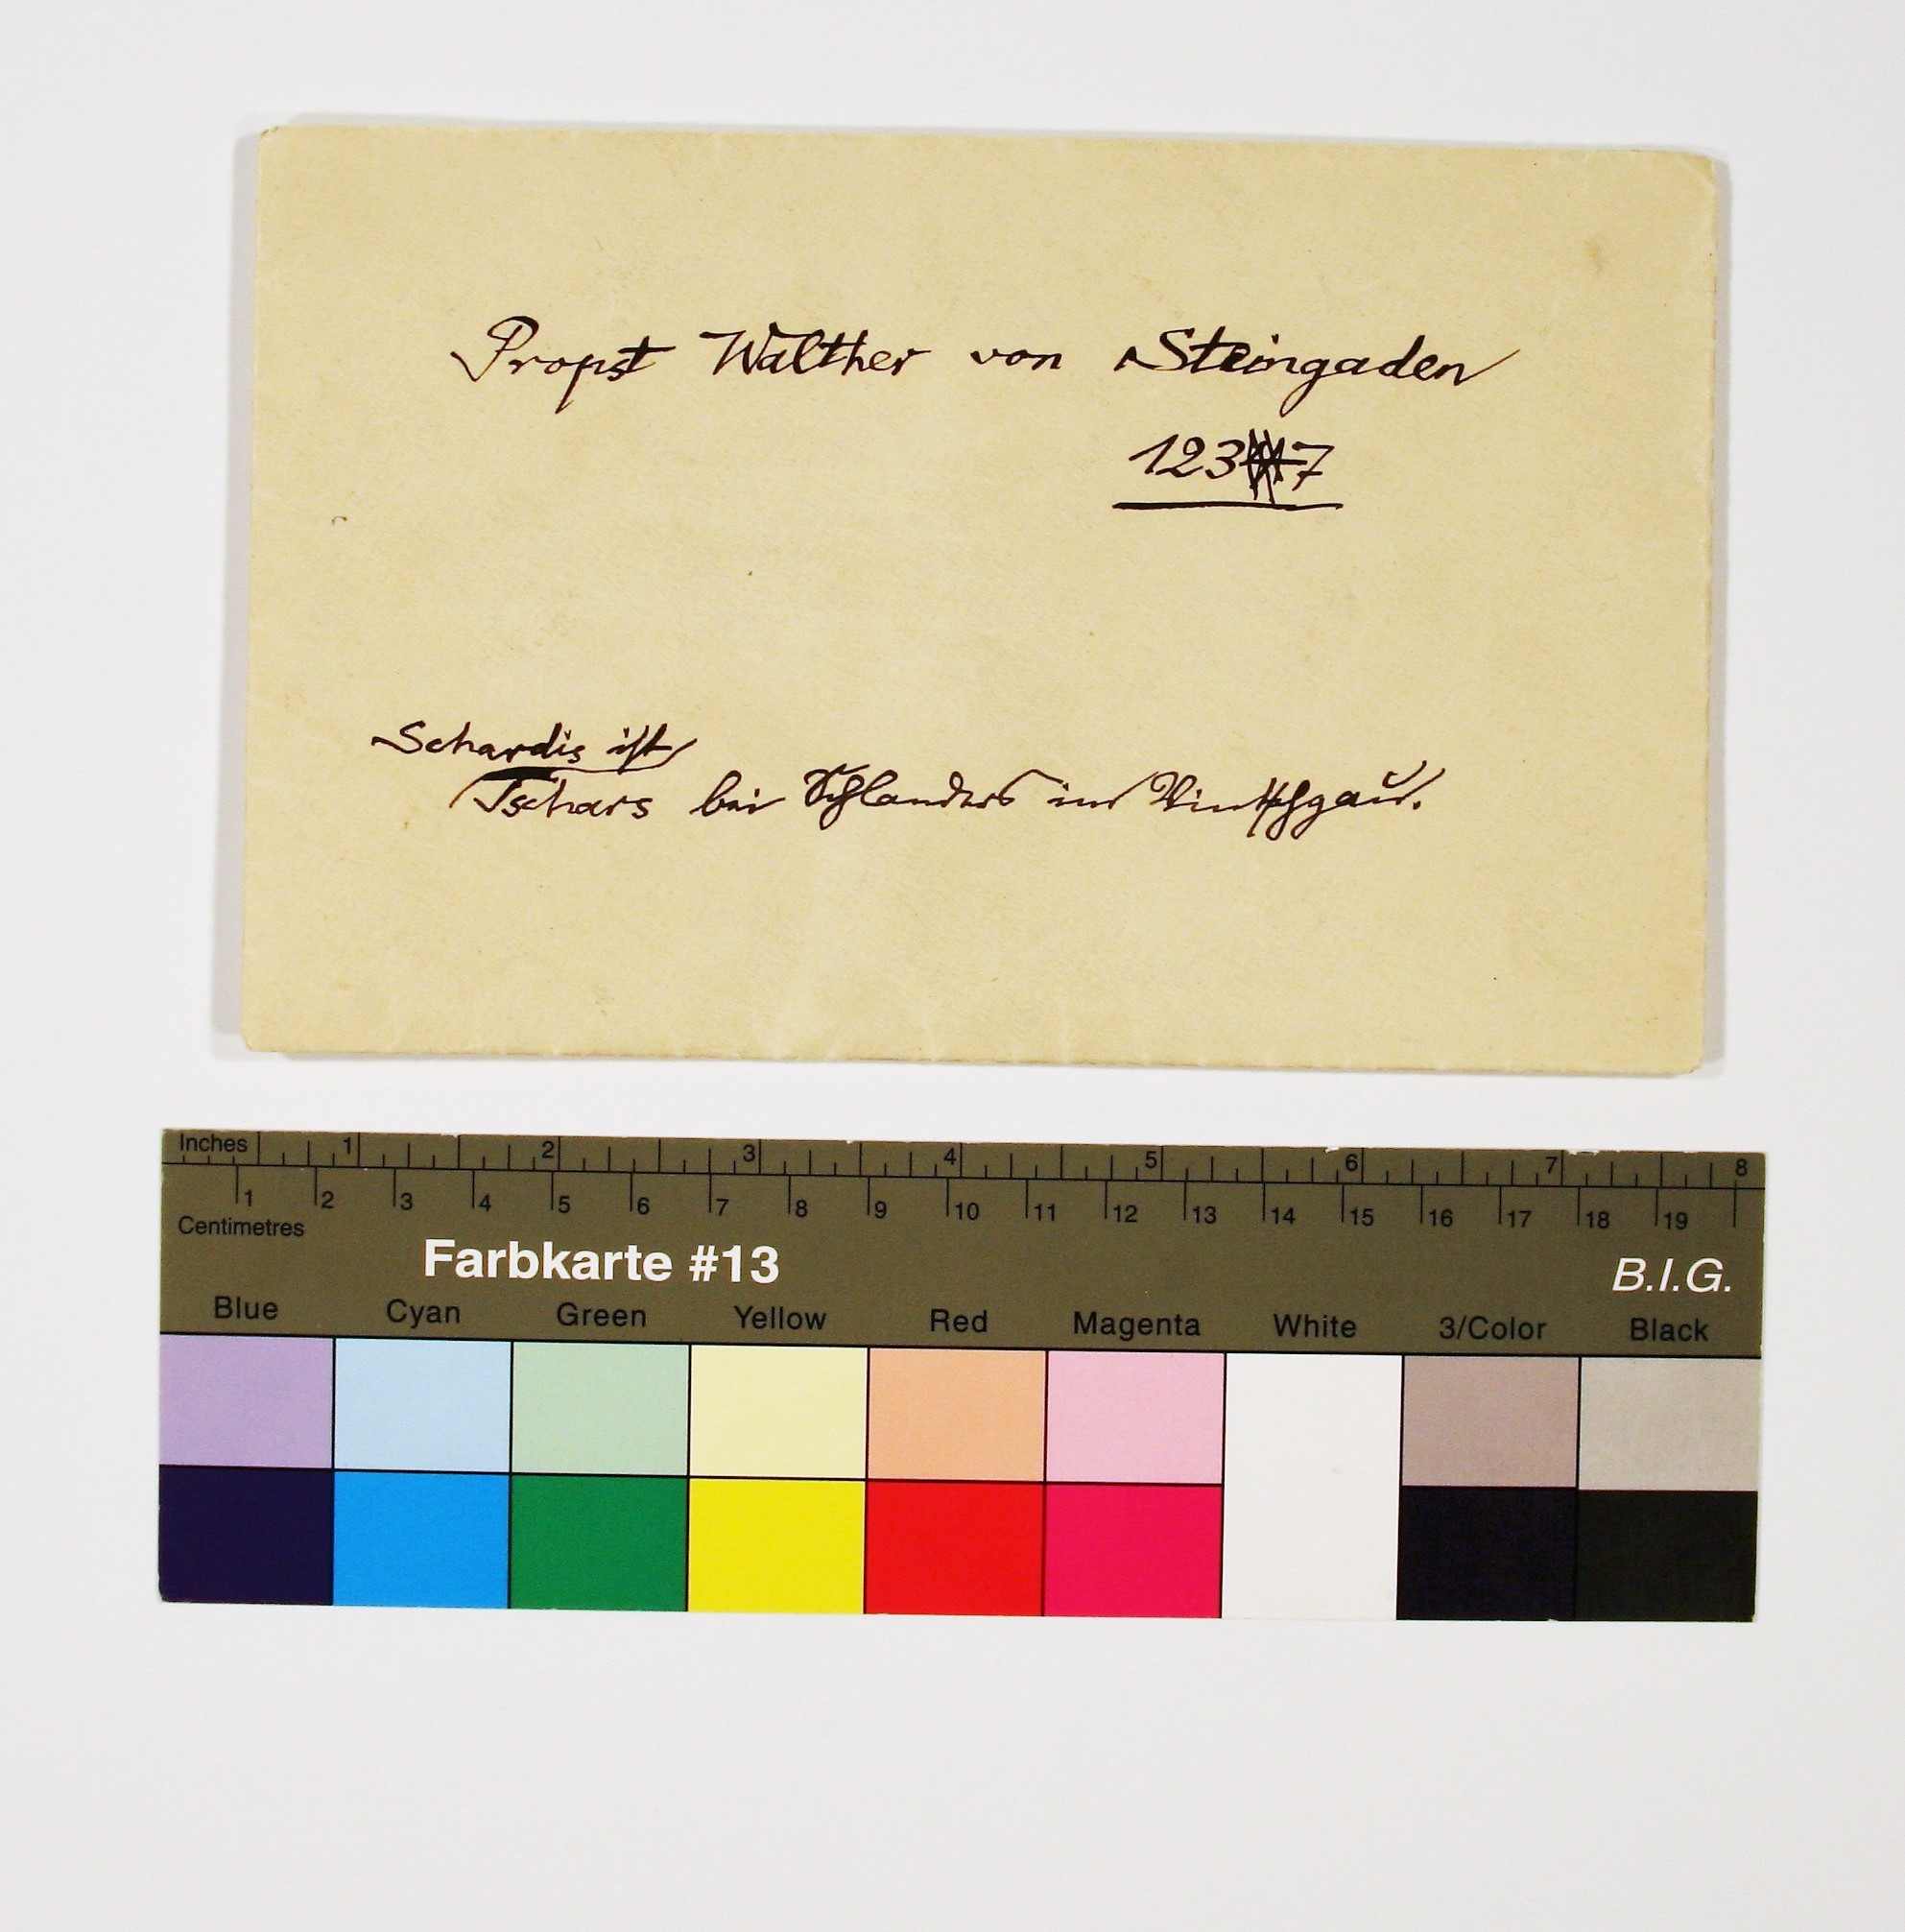 Propst Walther von Steingaden
1237
Schardis ist
Tschars bei Schlanders im Vintschgau.
Inches 1 2 3 4 5 6 7 8
1 2 3 4 5 6 7 8 9 10 11 12 13 14 15 16 17 18 19
Centimetres
Farbkarte #13 B.I.G.
Blue Cyan Green Yellow Red Magenta White 3/Color Black